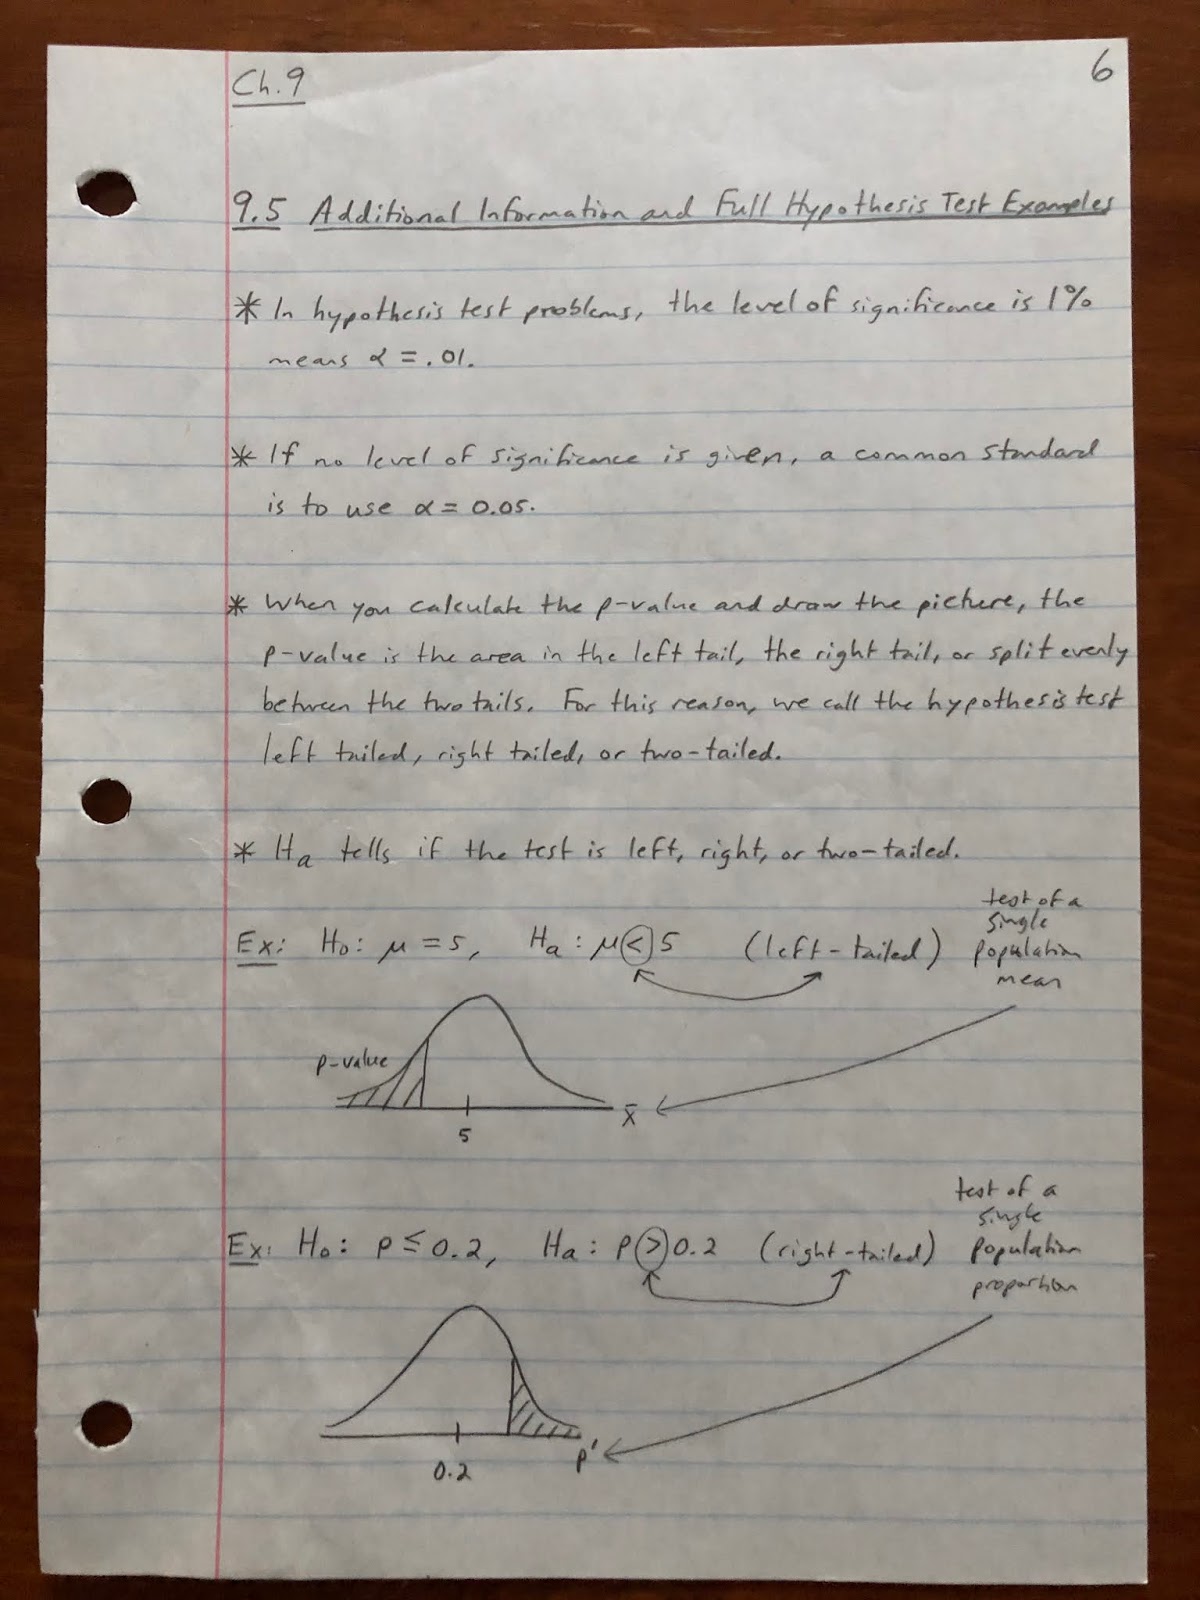 Ch.9
6
9.5 Additional Information and Full Hypothesis Test Examples
* In hypothesis test problems, the level of significance is 1%
means α = .01.
* If no level of significance is given, a common standard
is to use α = 0.05.
* When you calculate the p-value and draw the picture, the
p-value is the area in the left tail, the right tail, or split evenly
between the two tails. For this reason, we call the hypothesis test
left tailed, right tailed, or two-tailed.
* Ha tells if the test is left, right, or two-tailed.
Ex: H₀: μ = 5, Hₐ: μ < 5 (left-tailed)
test of a
single
population
mean
p-value
5
x̄
Ex: H₀: p ≤ 0.2, Hₐ: p > 0.2 (right-tailed)
test of a
single
population
proportion
0.2
p'